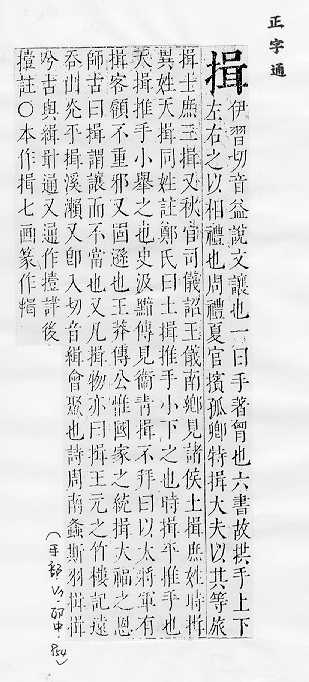 正字通
揖
伊習切音益說文讓也一曰手著胷也六書故拱手上下
左右之以相禮也周禮夏官擯孤卿特揖大夫以其等旅
揖士庶三揖又秋官司儀詔王儀南鄉見諸侯土揖庶姓時揖
異姓天揖同姓註鄭氏曰土揖推手小下之也時揖平推手也
天揖推手小舉之也史汲黯傳見衞青揖不拜曰以大將軍有
揖客顧不重邪又固遜也王莽傳公惟國家之統揖大福之恩
師古曰揖謂讓而不當也又凡揖物亦曰揖王元之竹樓記遠
吞山光平揖溪瀨又卽入切音緝會聚也詩周南螽斯羽揖揖
兮古與緝輯通通作撎詳後
撎註○本作揖七画篆作
(手部